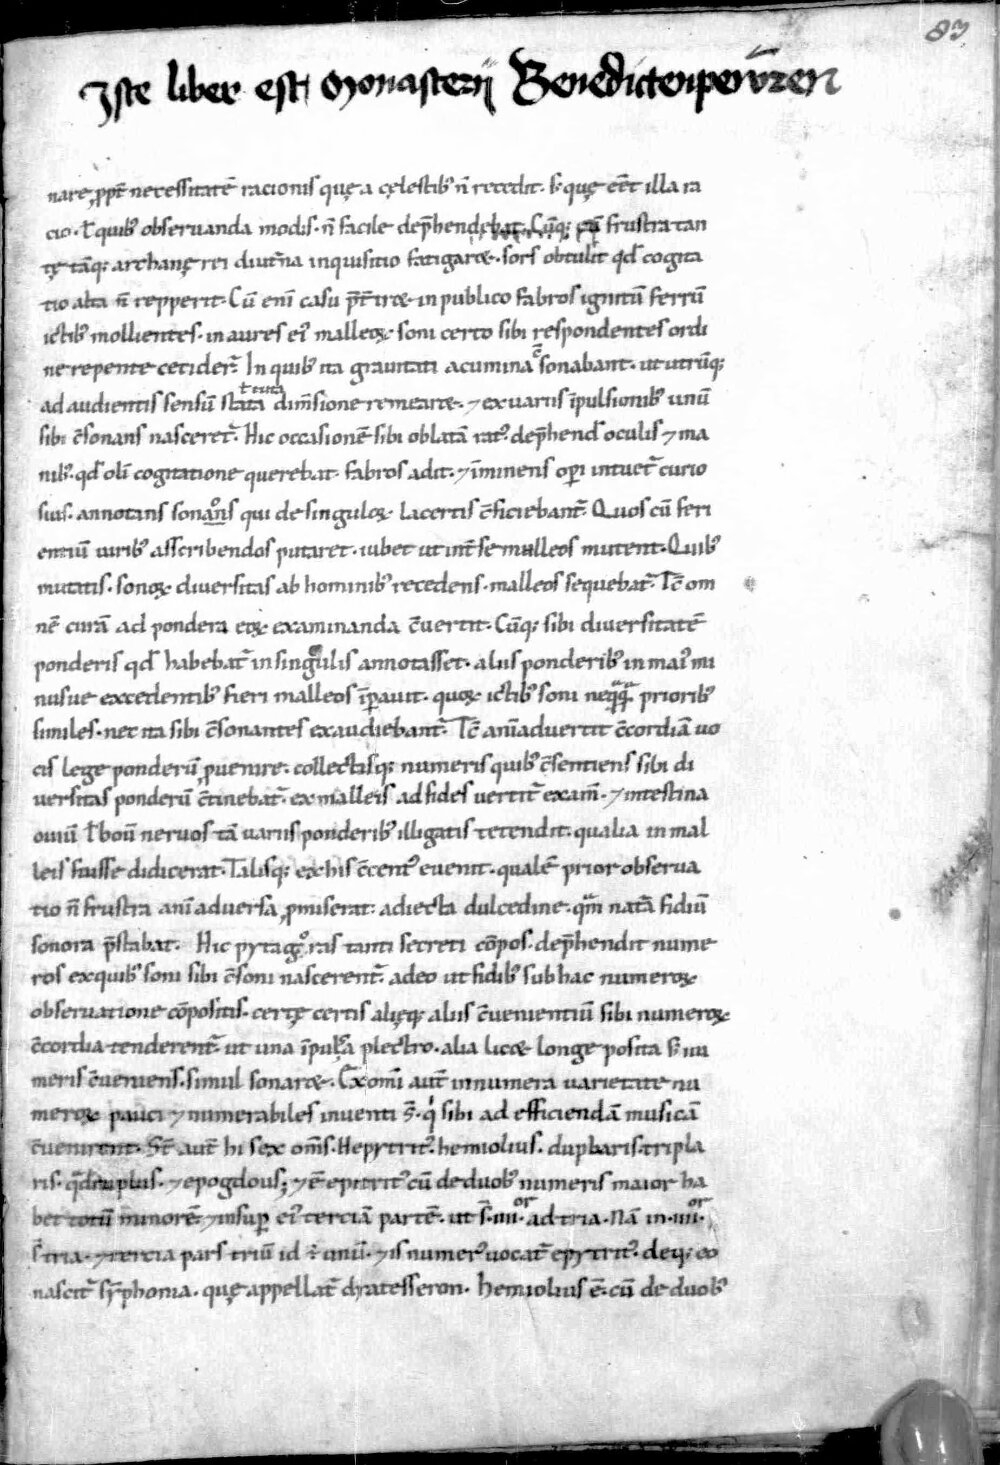 83
Iste liber est Monasterii Benedictenpewren
nare, ꝓpt̄ necessitatē racionis quę a cęlestib; n̄ recedit. S; quę eēt illa ra
cio. ł quib; observanda modis. n̄ facile dep̄hendebat. Cūq; eū frustra tan
tę tāq; archanę rei diut̾na inquisitio fatigaret. sors obtulit qđ cogita
tio alta n̄ repperit. Cū eni casu p̄t̾iret in publico fabros ignitū ferrū
ictib; mollientes. in aures ei᾽ malleoꝝ soni certo sibi respondentes ordi
ne repente cecider̄. In quib; ita gravitati acumina c̄sonabant. ut utrūq;
ad audientis sensū stata dim̄sione remearet. ⁊ ex variis īpulsionib; unū
sibi c̄sonans nasceret̾. Hic occasionē sibi oblatā rat᾽ dep̄hend̄ oculis ⁊ ma
nib;. qđ oli cogitatione querebat. fabros adit. ⁊ īminens oꝑi intuet̾ curio
sius. annotans sonos qui de singuloꝝ lacertis c̄ficiebant̾. Quos cū feri
entiū virib; asscribendos putaret. iubet ut int̾ se malleos mutent. Quib;
mutatis. sonoꝝ diversitas ab hominib; recedens. malleos sequebat̾. Tc̄ om
nē curā ad pondera eoꝝ examinanda c̄vertit. Cūq; sibi diversitatē
ponderis qđ habebat̾ in singulis annotasset. aliis ponderib; in mai᾽ mi
nusve excedentib; fieri malleos īꝑavit. quoꝝ ictib; soni neq̄q̄ priorib;
similes. nec ita sibi c̄sonantes exaudiebant̾. Tc̄ aniadvertit c̄cordiā vo
cis lege ponderū ꝓvenire. collectisq; numeris quib; c̄sentiens sibi di
versitas ponderū c̄tinebat̾. ex malleis ad fides vertit̾ exam̄. ⁊ intestina
oviū ł boū nervos tā variis ponderib; illigatis tetendit. qualia in mal
leis fuisse didicerat. Talisq; ex his c̄cent᾽ evenit. qualē prior observa
tio n̄ frustra aniadversa ꝓmiserat. adiecta dulcedine. qm̄ nat̾a fidiū
sonora p̄stabat. Hic pytagoras tanti secreti cōpos. dep̄hendit nume
ros ex quib; soni sibi c̄soni nascerent̾. adeo ut fidib; sub hac numeroꝝ
observatione cōpositis. certę certis alięq; aliis c̄venientiū sibi numeroꝝ
c̄cordia tenderent̾. ut una īpulsa plectro. alia licet longe posita s; nu
meris c̄veniens. simul sonaret. Ex omi aut̄ innumera varietate nu
meroꝝ pauci ⁊ numerabiles inventi s̄. qi sibi ad efficiendā musicā
c̄venirent. St̄ aut̄ hi sex oms̄. Hepytrit᾽. hemiolius. duplaris. tripla
ris. q̄druplus. ⁊ epogdous; ⁊ ē epitrit᾽ cū de duob; numeris maior ha
bet totū minorē ⁊ insuꝑ ei᾽ terciā partē. ut s̄ .iiiior ad tria. Nā in .iiiior.
s̄ tria. ⁊ tercia pars triū id ÷ unū. ⁊ is numer᾽ vocat̾ epytrit᾽. deq; eo
nascit̾ sȳphonia. quę appellat̾ dyatesseron. hemiolius ē. cū de duob;